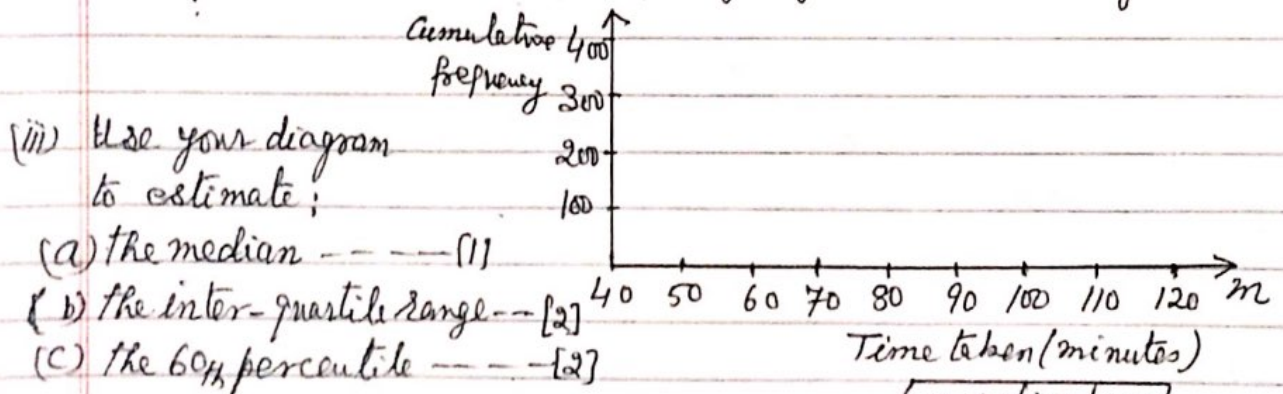 Cumulative
frequency
400
300
200
100
(iii) Use your diagram
to estimate;
(a) the median ----- [1]
(b) the inter-quartile range -- [2]
(c) the 60th percentile ----- [2]
40 50 60 70 80 90 100 110 120 m
Time taken (minutes)